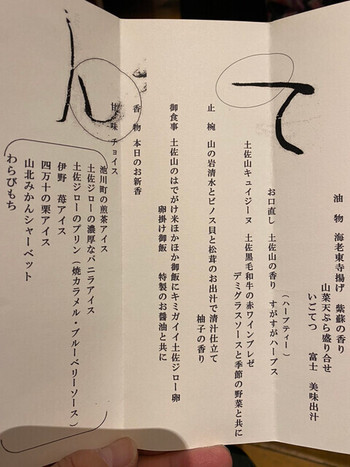 油　物　海老東寺揚げ　紫蘇の香り
山菜天ぷら盛り合せ
いごてつ　富士　美味出汁
（ハーブティー）
お口直し　土佐山の香り　すがすがハーブス
土佐山キュイジーヌ　土佐黒毛和牛の赤ワインブレゼ
デミグラスソースと季節の野菜と共に
止　椀　山の岩清水とビノス貝と松茸のお出汁で清汁仕立て
柚子の香り
御食事　土佐山のはでがけ米ほかほか御飯にキミガイイ土佐ジロー卵
卵掛け御飯　特製のお醤油と共に
香　物　本日のお新香
甘　味　チョイス
池川町の煎茶アイス
土佐ジローの濃厚なバニラアイス
土佐ジローのプリン（焼カラメル・ブルーベリーソース）
伊野　苺アイス
四万十の栗アイス
山北みかんシャーベット
わらびもち
て
ん